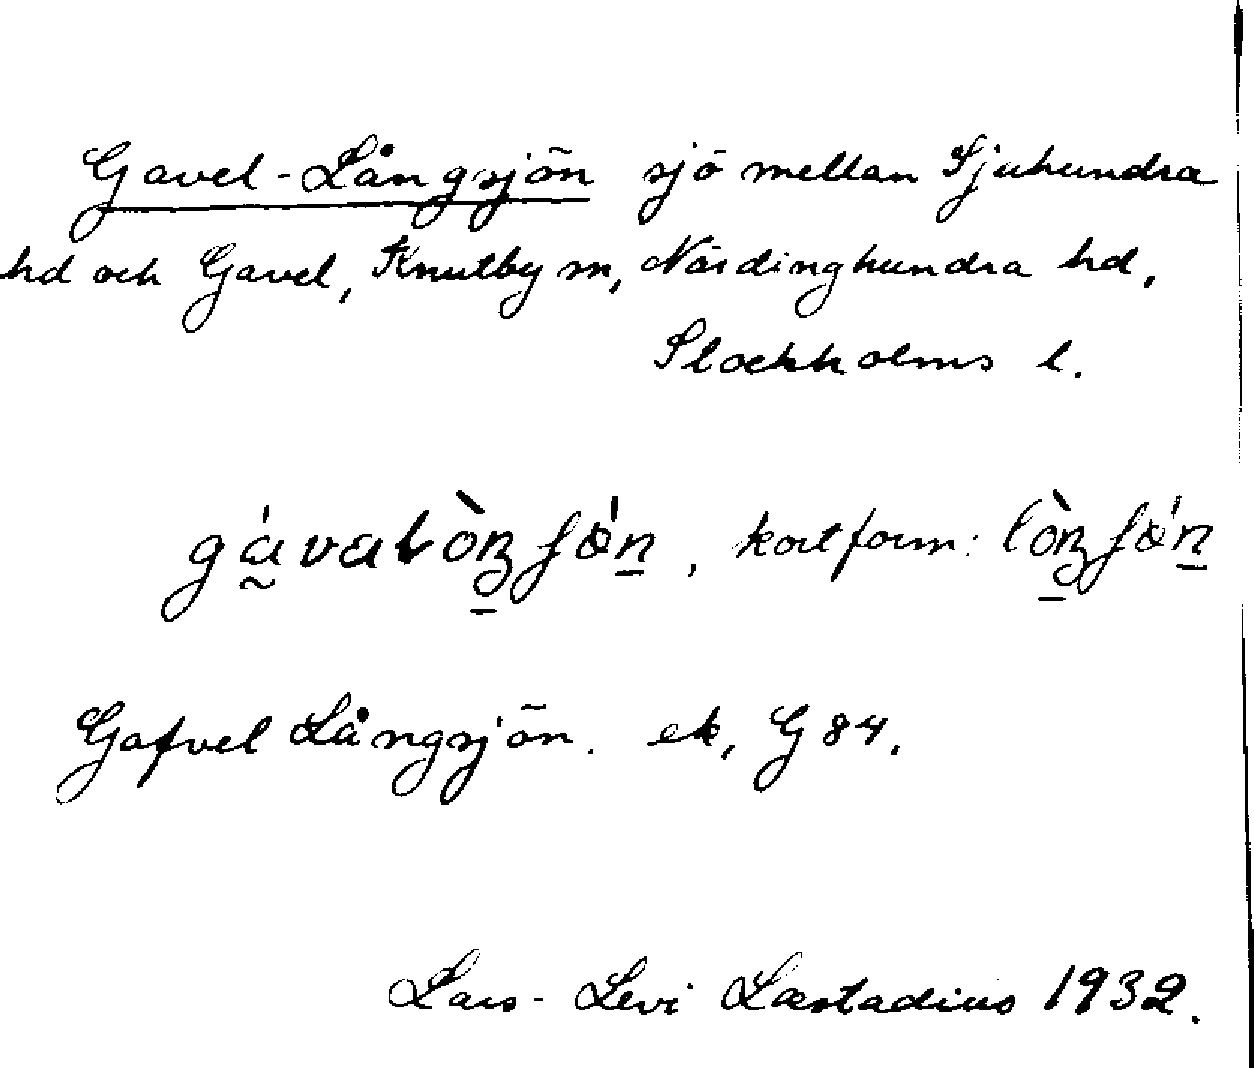 Gavel-Långsjön sjö mellan Sjuhundra
hd och Gavel, Knutby sn, Närdinghundra hd,
Stockholms l.
gá̰valòŋ̱ʃǿṉ, kortform: lòŋ̱ʃǿṉ
Gafvel Långsjön. ek, G 84.
Lars-Levi Læstadius 1932.